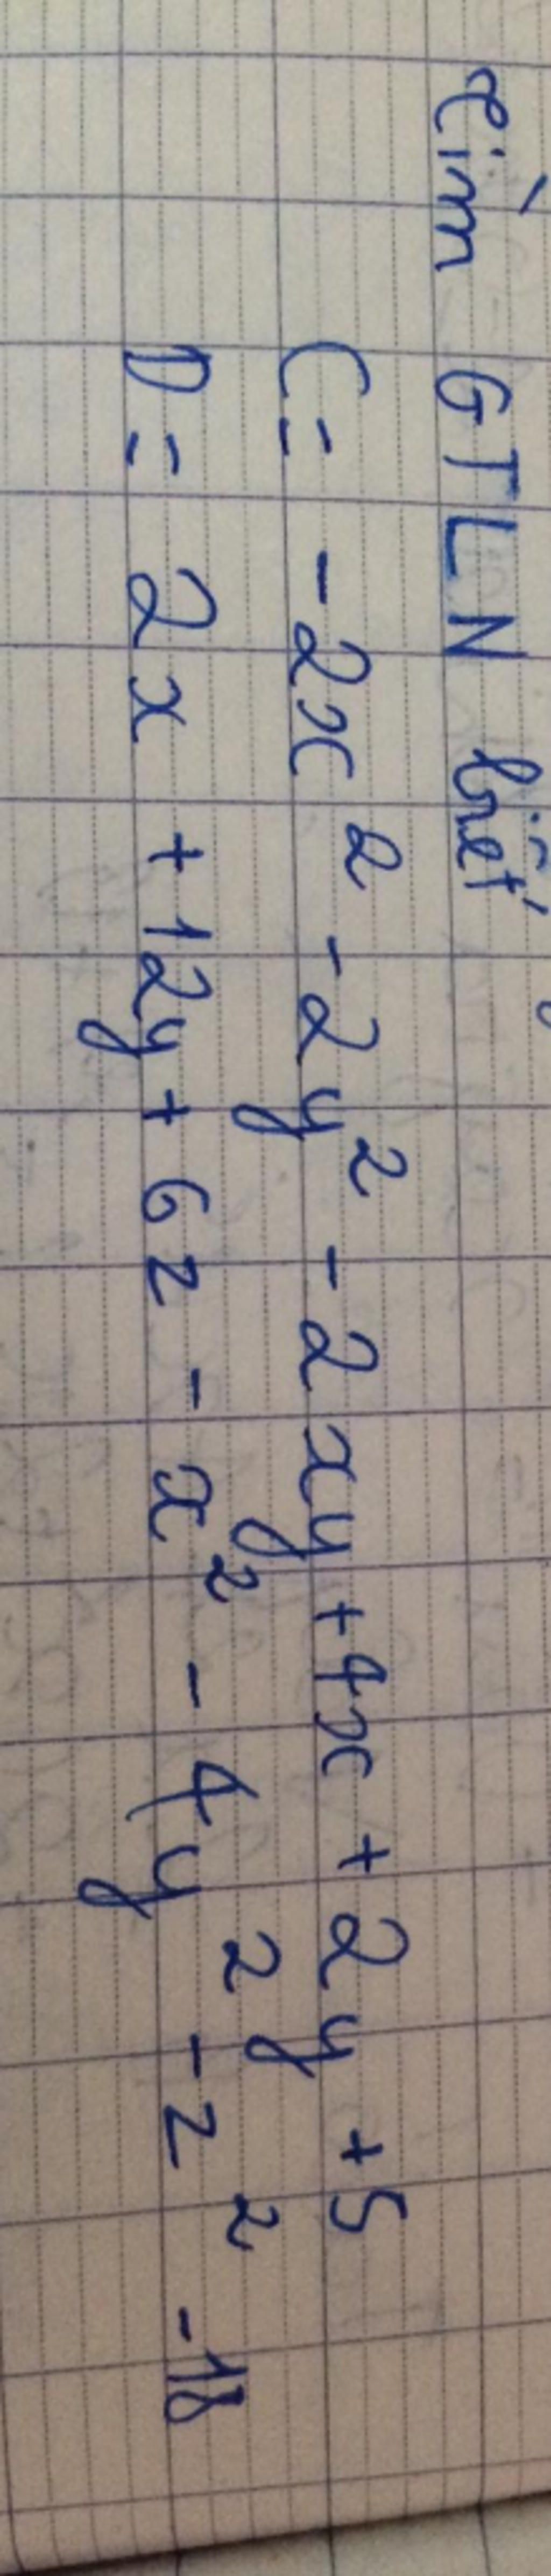 Tìm GTLN biết
C = -2x² - 2y² - 2xy + 4x + 2y + 5
D = 2x + 12y + 6z - x² - 4y² - z² - 18